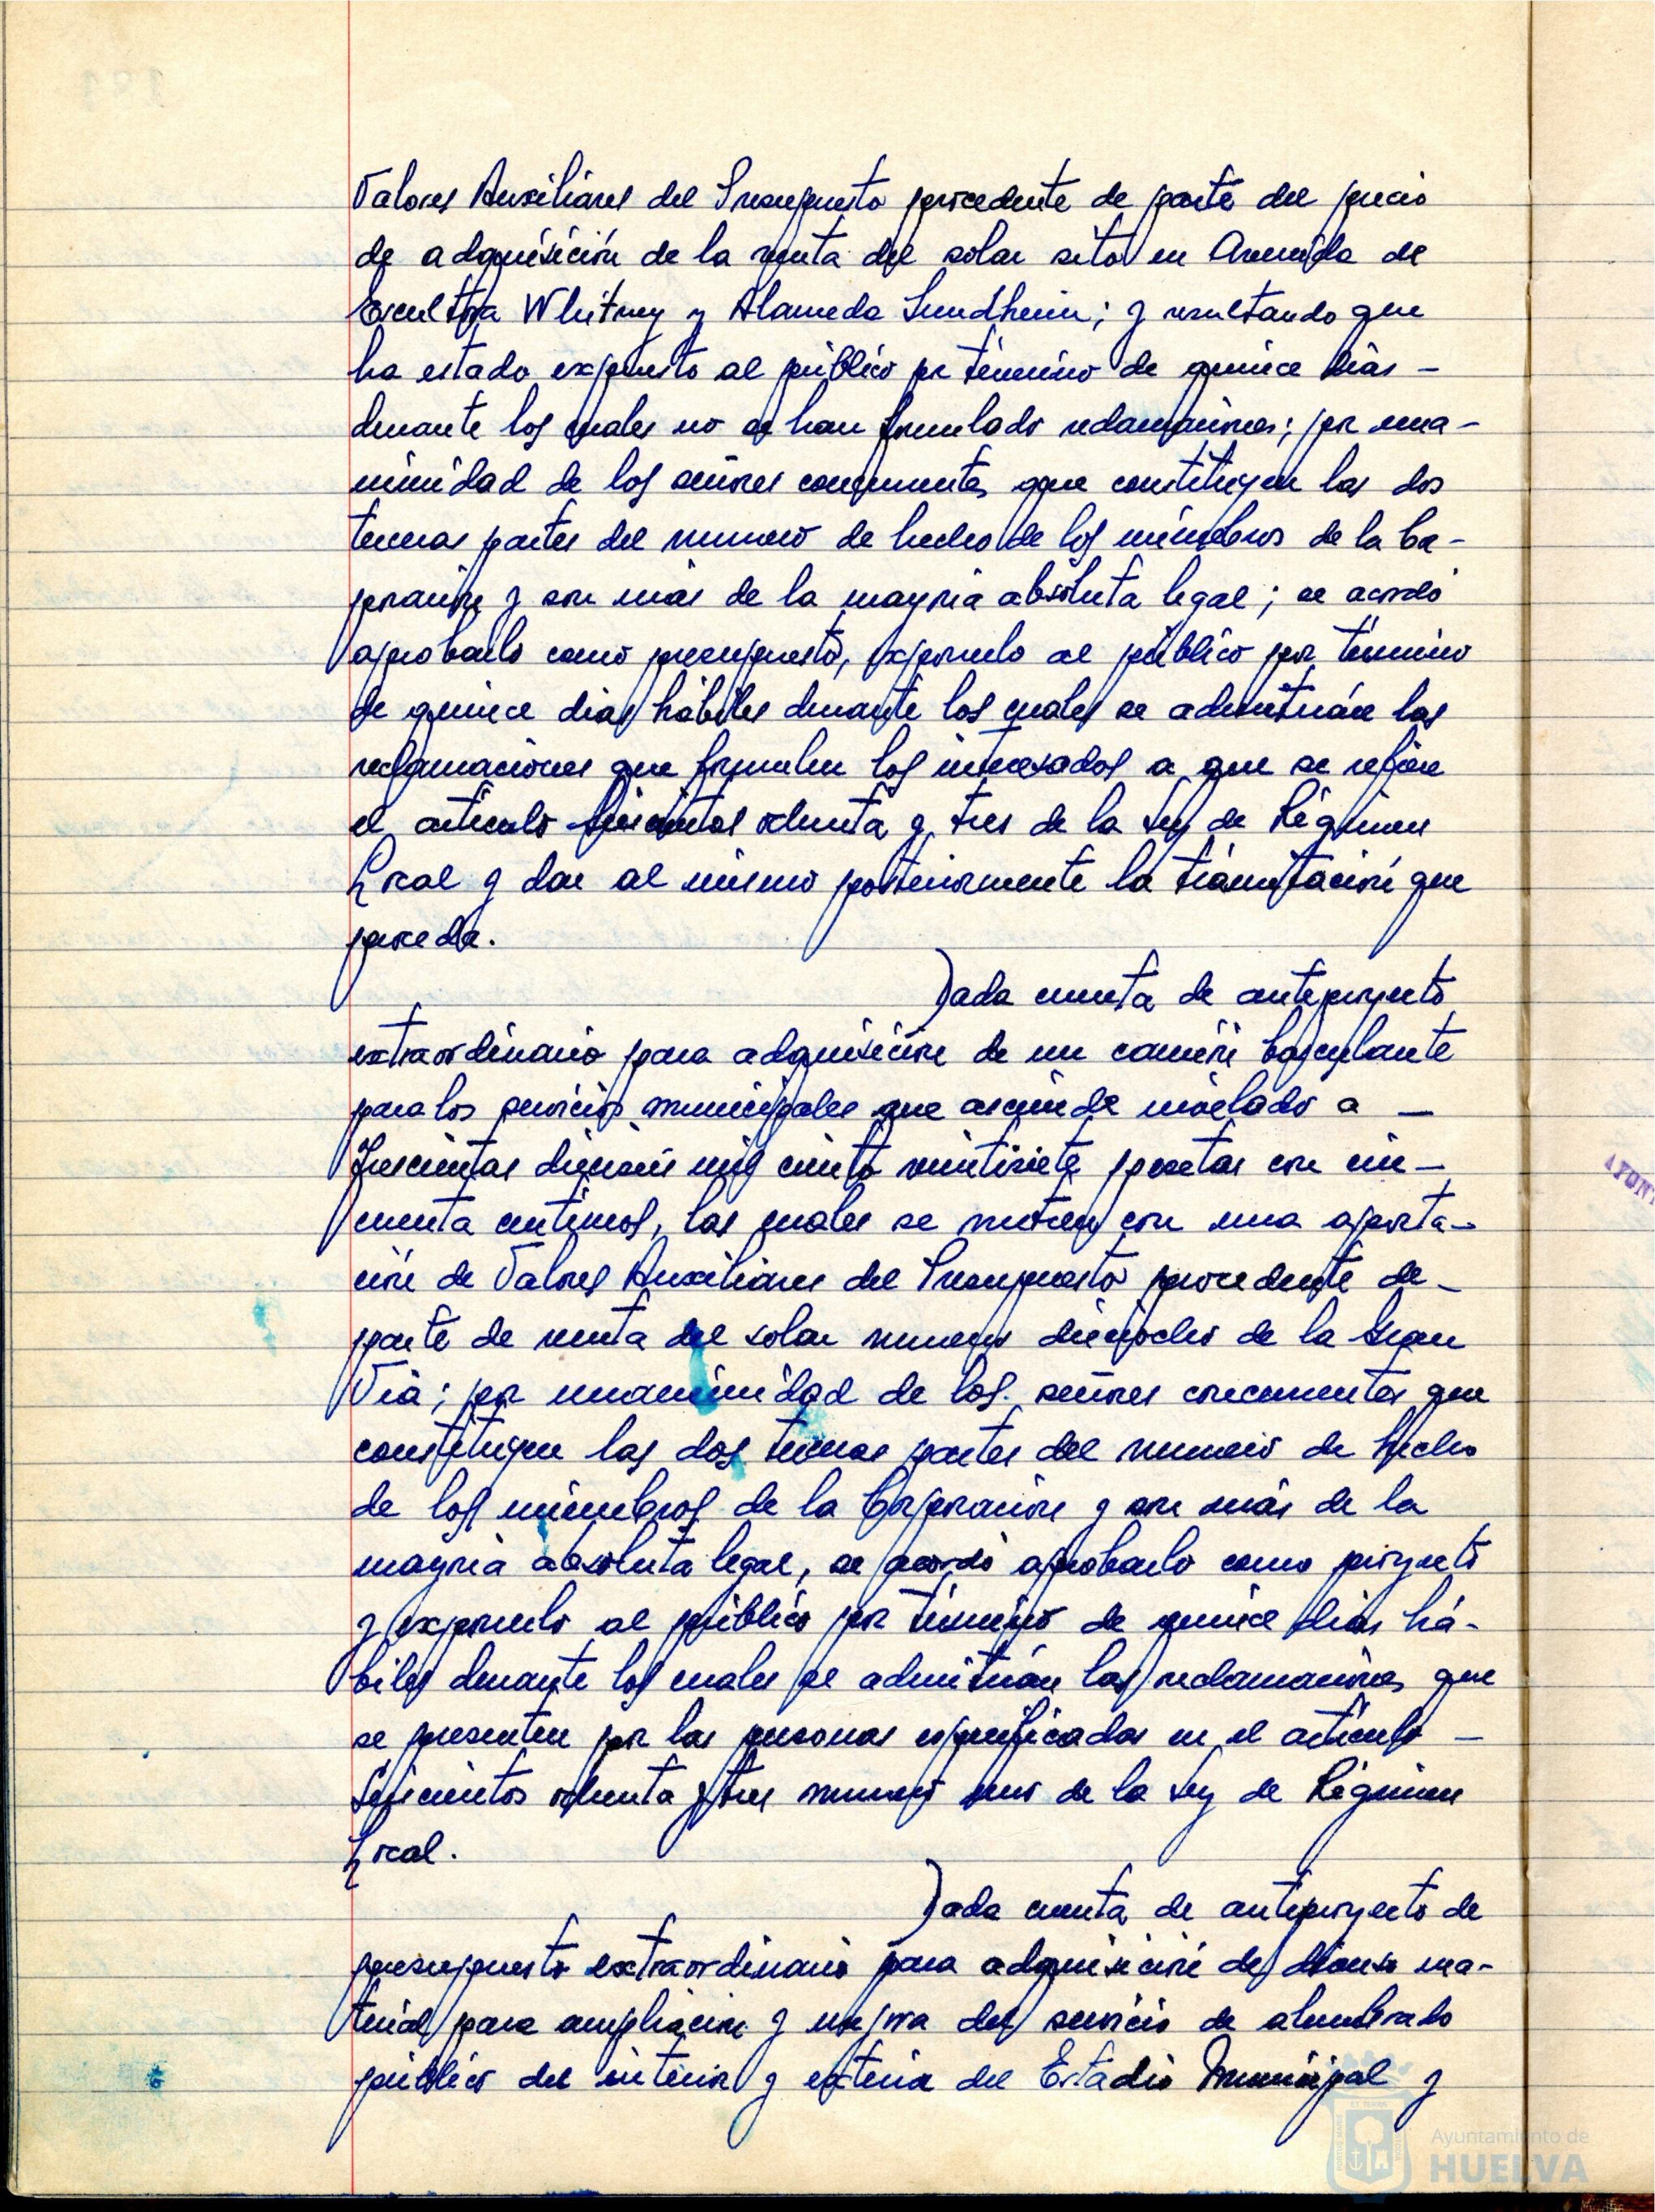 Valores Auxiliares del Presupuesto procedente de parte del precio
de adquisición de la venta del solar sito en Avenida de
Escultora Whitney y Alameda Sundheim; y resultando que
ha estado expuesto al público por término de quince días –
durante los cuales no se han formulado reclamaciones; por una-
nimidad de los señores concurrentes que constituyen las dos
terceras partes del numero de hecho de los miembros de la Co-
poración y son más de la mayoria absoluta legal; se acordó
aprobarlo como presupuesto, exponerlo al público por término
de quince dias hábiles durante los cuales se admitirán las
reclamaciones que formulen los interesados a que se refiere
el artículo seiscientos ochenta y tres de la Ley de Régimen
Local y dar al mismo posteriormente la tramitación que
proceda.
Dada cuenta de anteproyecto
extraordinario para adquisición de un camión basculante
para los servicios municipales que asciende nivelado a —
trescientas dieciseis mil ciento veintisiete pesetas con cin-
cuenta centimos, las cuales se nutren con una aporta-
ción de Valores Auxiliares del Presupuesto procedente de-
parte de venta del solar numero dieciocho de la Gran
Via; por unanimidad de los señores concurrentes que
constituyen las dos terceras partes del numero de hecho
de los miembros de la Corporación y son más de la
mayoria absoluta legal, se acordó aprobarlo como proyecto
y exponerlo al público por término de quince dias há-
biles durante los cuales se admitirán las reclamaciones que
se presenten por las personas especificadas en el artículo —
seiscientos ochenta y tres numero uno de la Ley de Régimen
Local.
Dada cuenta de anteproyecto de
presupuesto extraordinario para adquisición de diverso ma-
terial para ampliación y mejora del servicio de alumbrado
público del interior y exterior del Estadio Municipal y
Ayuntamiento de
HUELVA